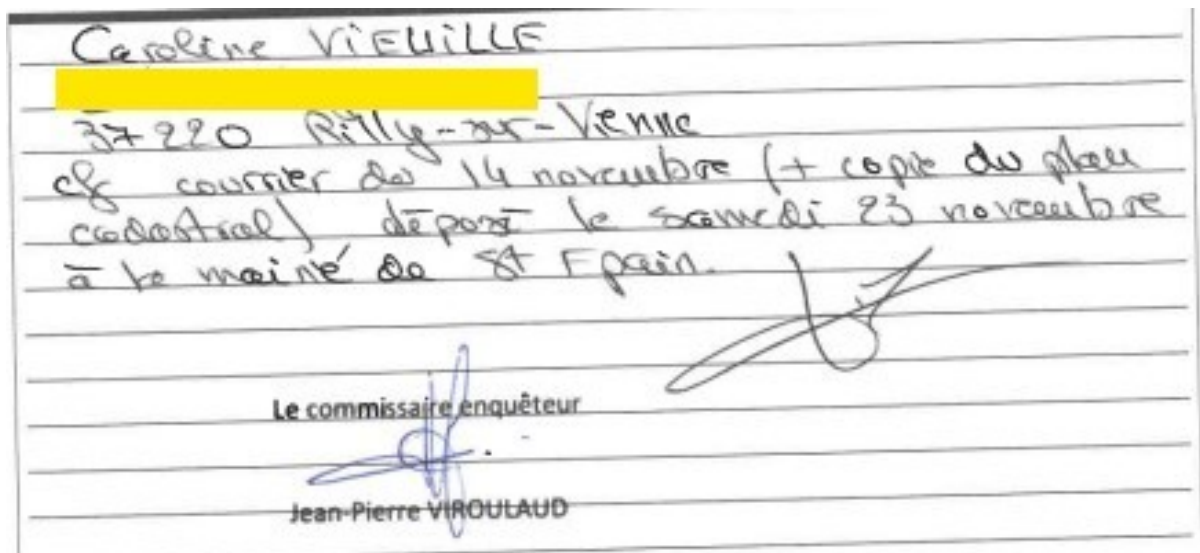 Caroline VIEUILLE
37220 Rilly-sur-Vienne
cf courrier du 14 novembre (+ copie du plan
cadastral) déposé le samedi 23 novembre
à la mairie de St Epain.
Le commissaire enquêteur
Jean-Pierre VIROULAUD